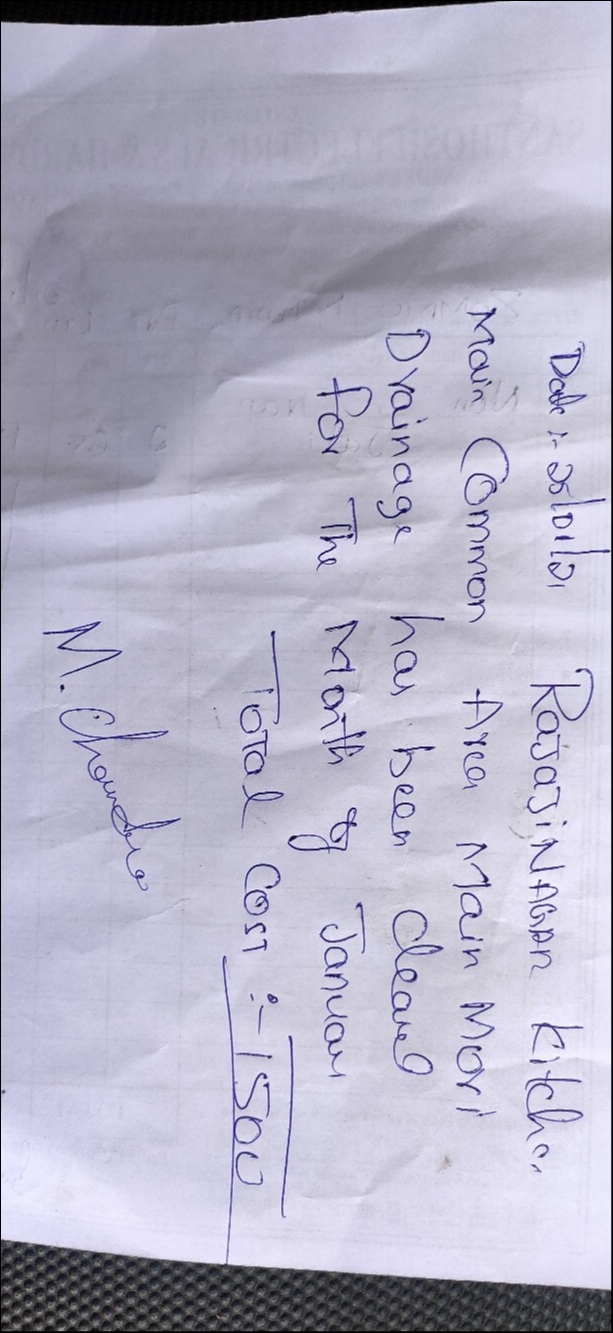 Date :- Rajaji NAGAR Kitchen
Main Common Area Main Mori
Drainage has been cleaned
for The Month of January
Total Cost :- 1500
M. Chandra